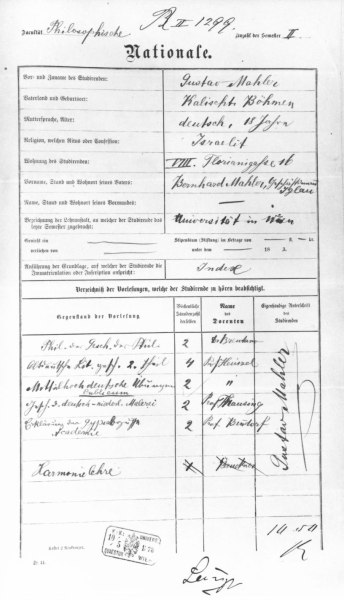 R II 1299.
Facultät: Philosophische Anzahl der Semester II.
Nationale.
Vor- und Zuname des Studirenden: Gustav Mahler
Vaterland und Geburtsort: Kalischt Böhmen
Muttersprache, Alter: deutsch, 18 Jahre
Religion, welchen Ritus oder Confession: Israelit
Wohnung des Studirenden: VIII. Florianigasse 16
Vorname, Stand und Wohnort seines Vaters: Bernhard Mahler, Iglau
Name, Stand und Wohnort seines Vormundes:
Bezeichnung der Lehranstalt, an welcher der Studirende das letzte Semester zugebracht: Universität in Wien
Genießt ein Stipendium (Stiftung) im Betrage von fl. kr.
verliehen von unter dem 18
Anführung der Grundlage, auf welcher der Studirende die Immatrikulation oder Inscription anspricht: Index
Verzeichnis der Vorlesungen, welche der Studirende zu hören beabsichtigt.
Gegenstand der Vorlesung
Wöchentliche Stundenzahl derselben
Name des Docenten
Eigenhändige Unterschrift des Studirenden
2
Altdeutsche 2. 4 Prof Heinzel
Mittelhochdeutsche Übungen 2 "
Malerei 2 Prof Thausing
Erklärung der Gypsabgüsse 2 Prof. Benndorf
Academie
Harmonielehre 4 Bruckner
Gustav Mahler